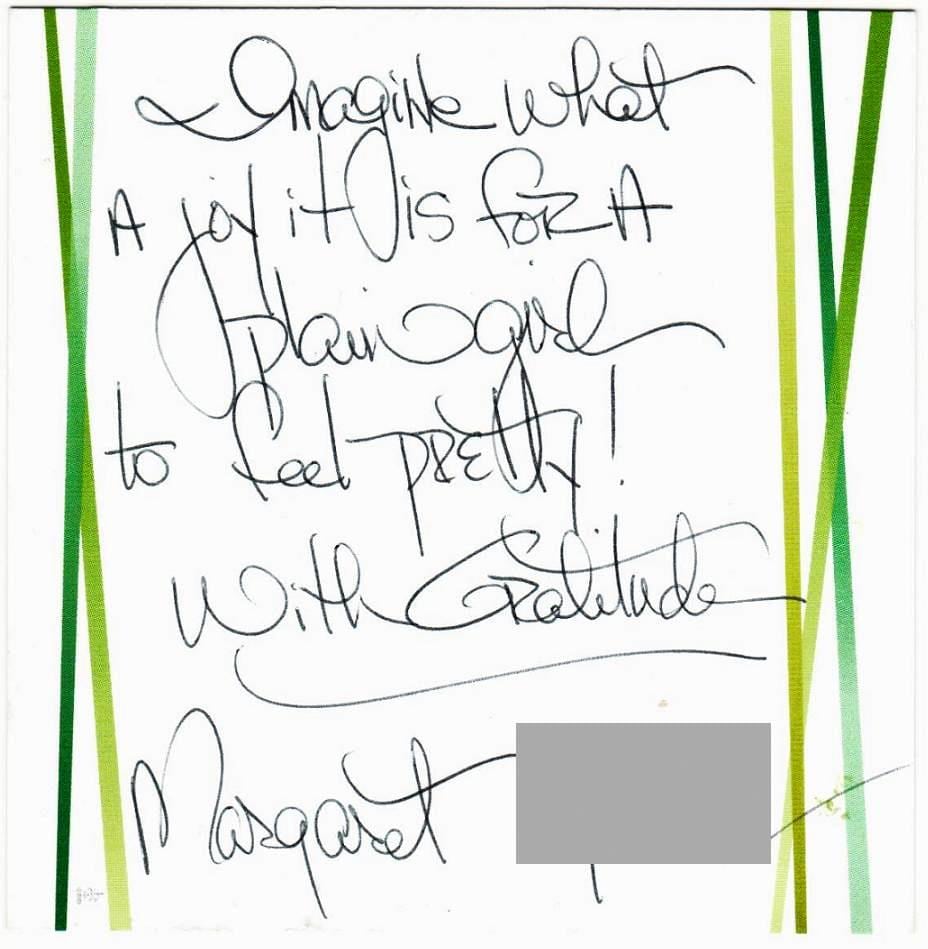 Imagine what
A joy it is for A
plain girl
to feel pretty!
With Gratitude
Margaret